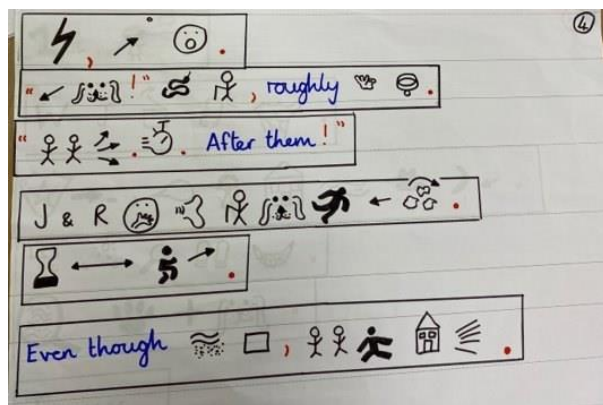 4
, .
" ! " , roughly .
" . . After them ! "
J & R .
.
Even though , .